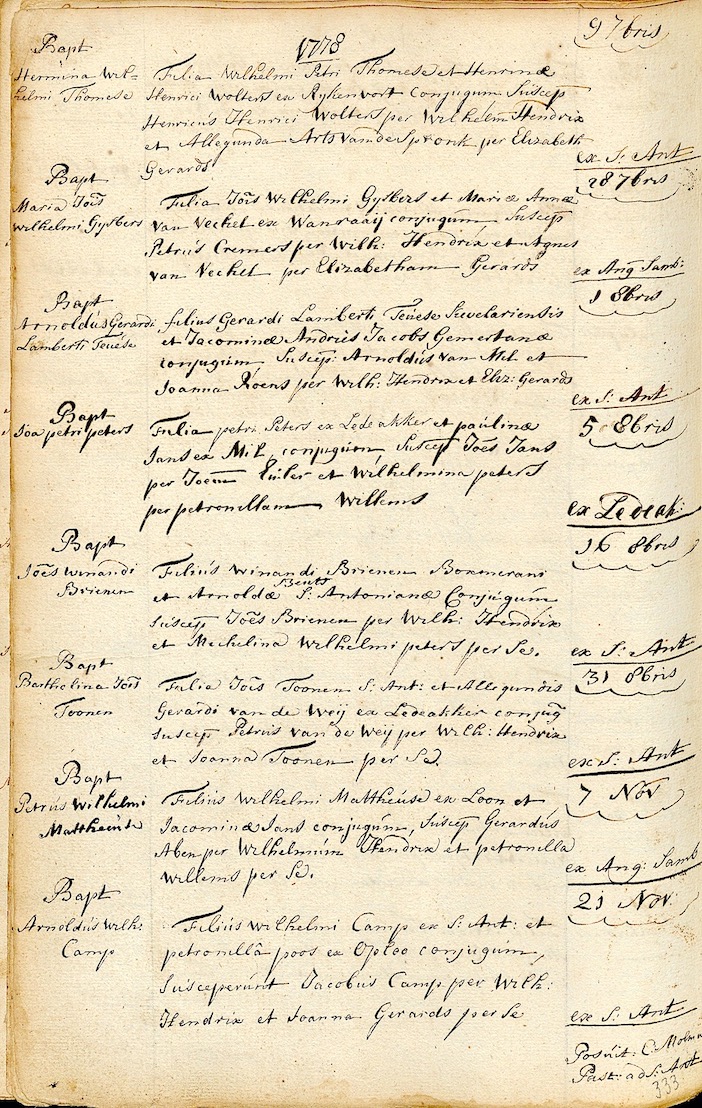 1778
9 7bris
Bapt
Hermina Wil-
helmi Thomese
Filia Wilhelmi Petri Thomese et Henrinæ
Henrici Wolters ex Rykenvort Conjugum Suscep
Henricus Henrici Wolters per Wilhelm Hendrix
et Allegunda Arts van de Spronk per Elizabeth
Gerards
ex S: Ant
28 7bris
Bapt
Maria Joẽs
Wilhelmi Gysbers
Filia Joẽs Wilhelmi Gysbers et Mariæ Annæ
van Vechel ex Wanraaij conjugum Suscep
Petrus Cremers per Wilh: Hendrix et Agnes
van Vechel per Elizabetham Gerards
ex Ang Samb:
1 8bris
Bapt
Arnoldus Gerardi
Lamberti Teuese
filius Gerardi Lamberti Teuese Sevelariensis
et Jacominæ Andries Jacobs Gemertanæ
conjugum Suscep: Arnoldus van Mil et
Joanna Roens per Wilh: Hendrix et Eliz: Gerards
ex S: Ant
5 8bris
Bapt
Joa petri peters
Filia petri Peters ex Ledeakker et paulinæ
Jans ex Mil, conjugum, Suscep Joẽs Jans
per Joem Euler et Wilhelmina peters
per petronellam Willems
ex Ledeak:
16 8bris
Bapt
Joẽs Winandi
Brienen
Filius Winandi Brienen Boxmerani
et Arnoldæ Beuts S: Antonianæ Conjugum
Suscep Joẽs Brienen per Wilh: Hendrix
et Mechelina Wilhelmi peters per Se.
ex S: Ant
31 8bris
Bapt
Barthelina Joẽs
Toonen
Filia Joẽs Toonen S: Ant: et Allegundis
Gerardi van de Weij ex Ledeakker conjug
Suscep Petrus van de Weij per Wilh: Hendrix
et Joanna Toonen per Se.
ex S: Ant
7 Nov
Bapt
Petrus Wilhelmi
Mattheuse
Filius Wilhelmi Mattheuse ex Loon et
Jacominæ Jans conjugum, Suscep Gerardus
Aben per Wilhelmum Hendrix et petronella
Willems per Se.
ex Ang: Samb
21 Nov
Bapt
Arnoldus Wilh:
Camp
Filius Wilhelmi Camp ex S: Ant: et
petronellâ poos ex Oploo conjugum,
Susceperunt Jacobus Camp per Wilh:
Hendrix et Joanna Gerards per Se
ex S: Ant
Posuit: C. Molma
Past: ad S: Ant
333